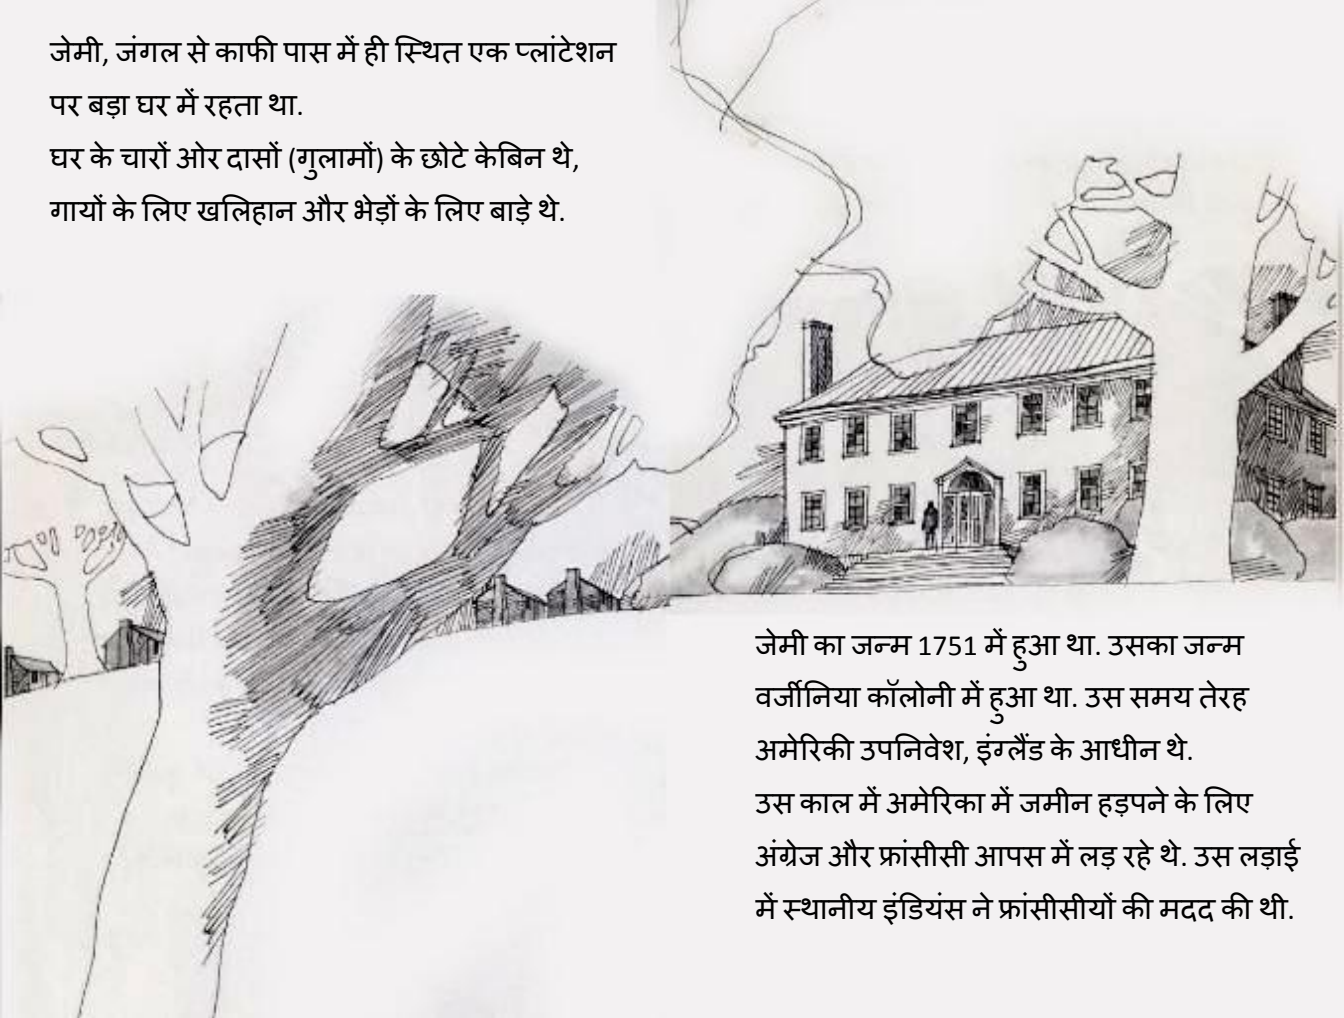 जेमी, जंगल से काफी पास में ही स्थित एक प्लांटेशन
पर बड़ा घर में रहता था.
घर के चारों ओर दासों (गुलामों) के छोटे केबिन थे,
गायों के लिए खलिहान और भेड़ों के लिए बाड़े थे.
जेमी का जन्म 1751 में हुआ था. उसका जन्म
वर्जीनिया कॉलोनी में हुआ था. उस समय तेरह
अमेरिकी उपनिवेश, इंग्लैंड के आधीन थे.
उस काल में अमेरिका में जमीन हड़पने के लिए
अंग्रेज और फ्रांसीसी आपस में लड़ रहे थे. उस लड़ाई
में स्थानीय इंडियंस ने फ्रांसीसीयों की मदद की थी.